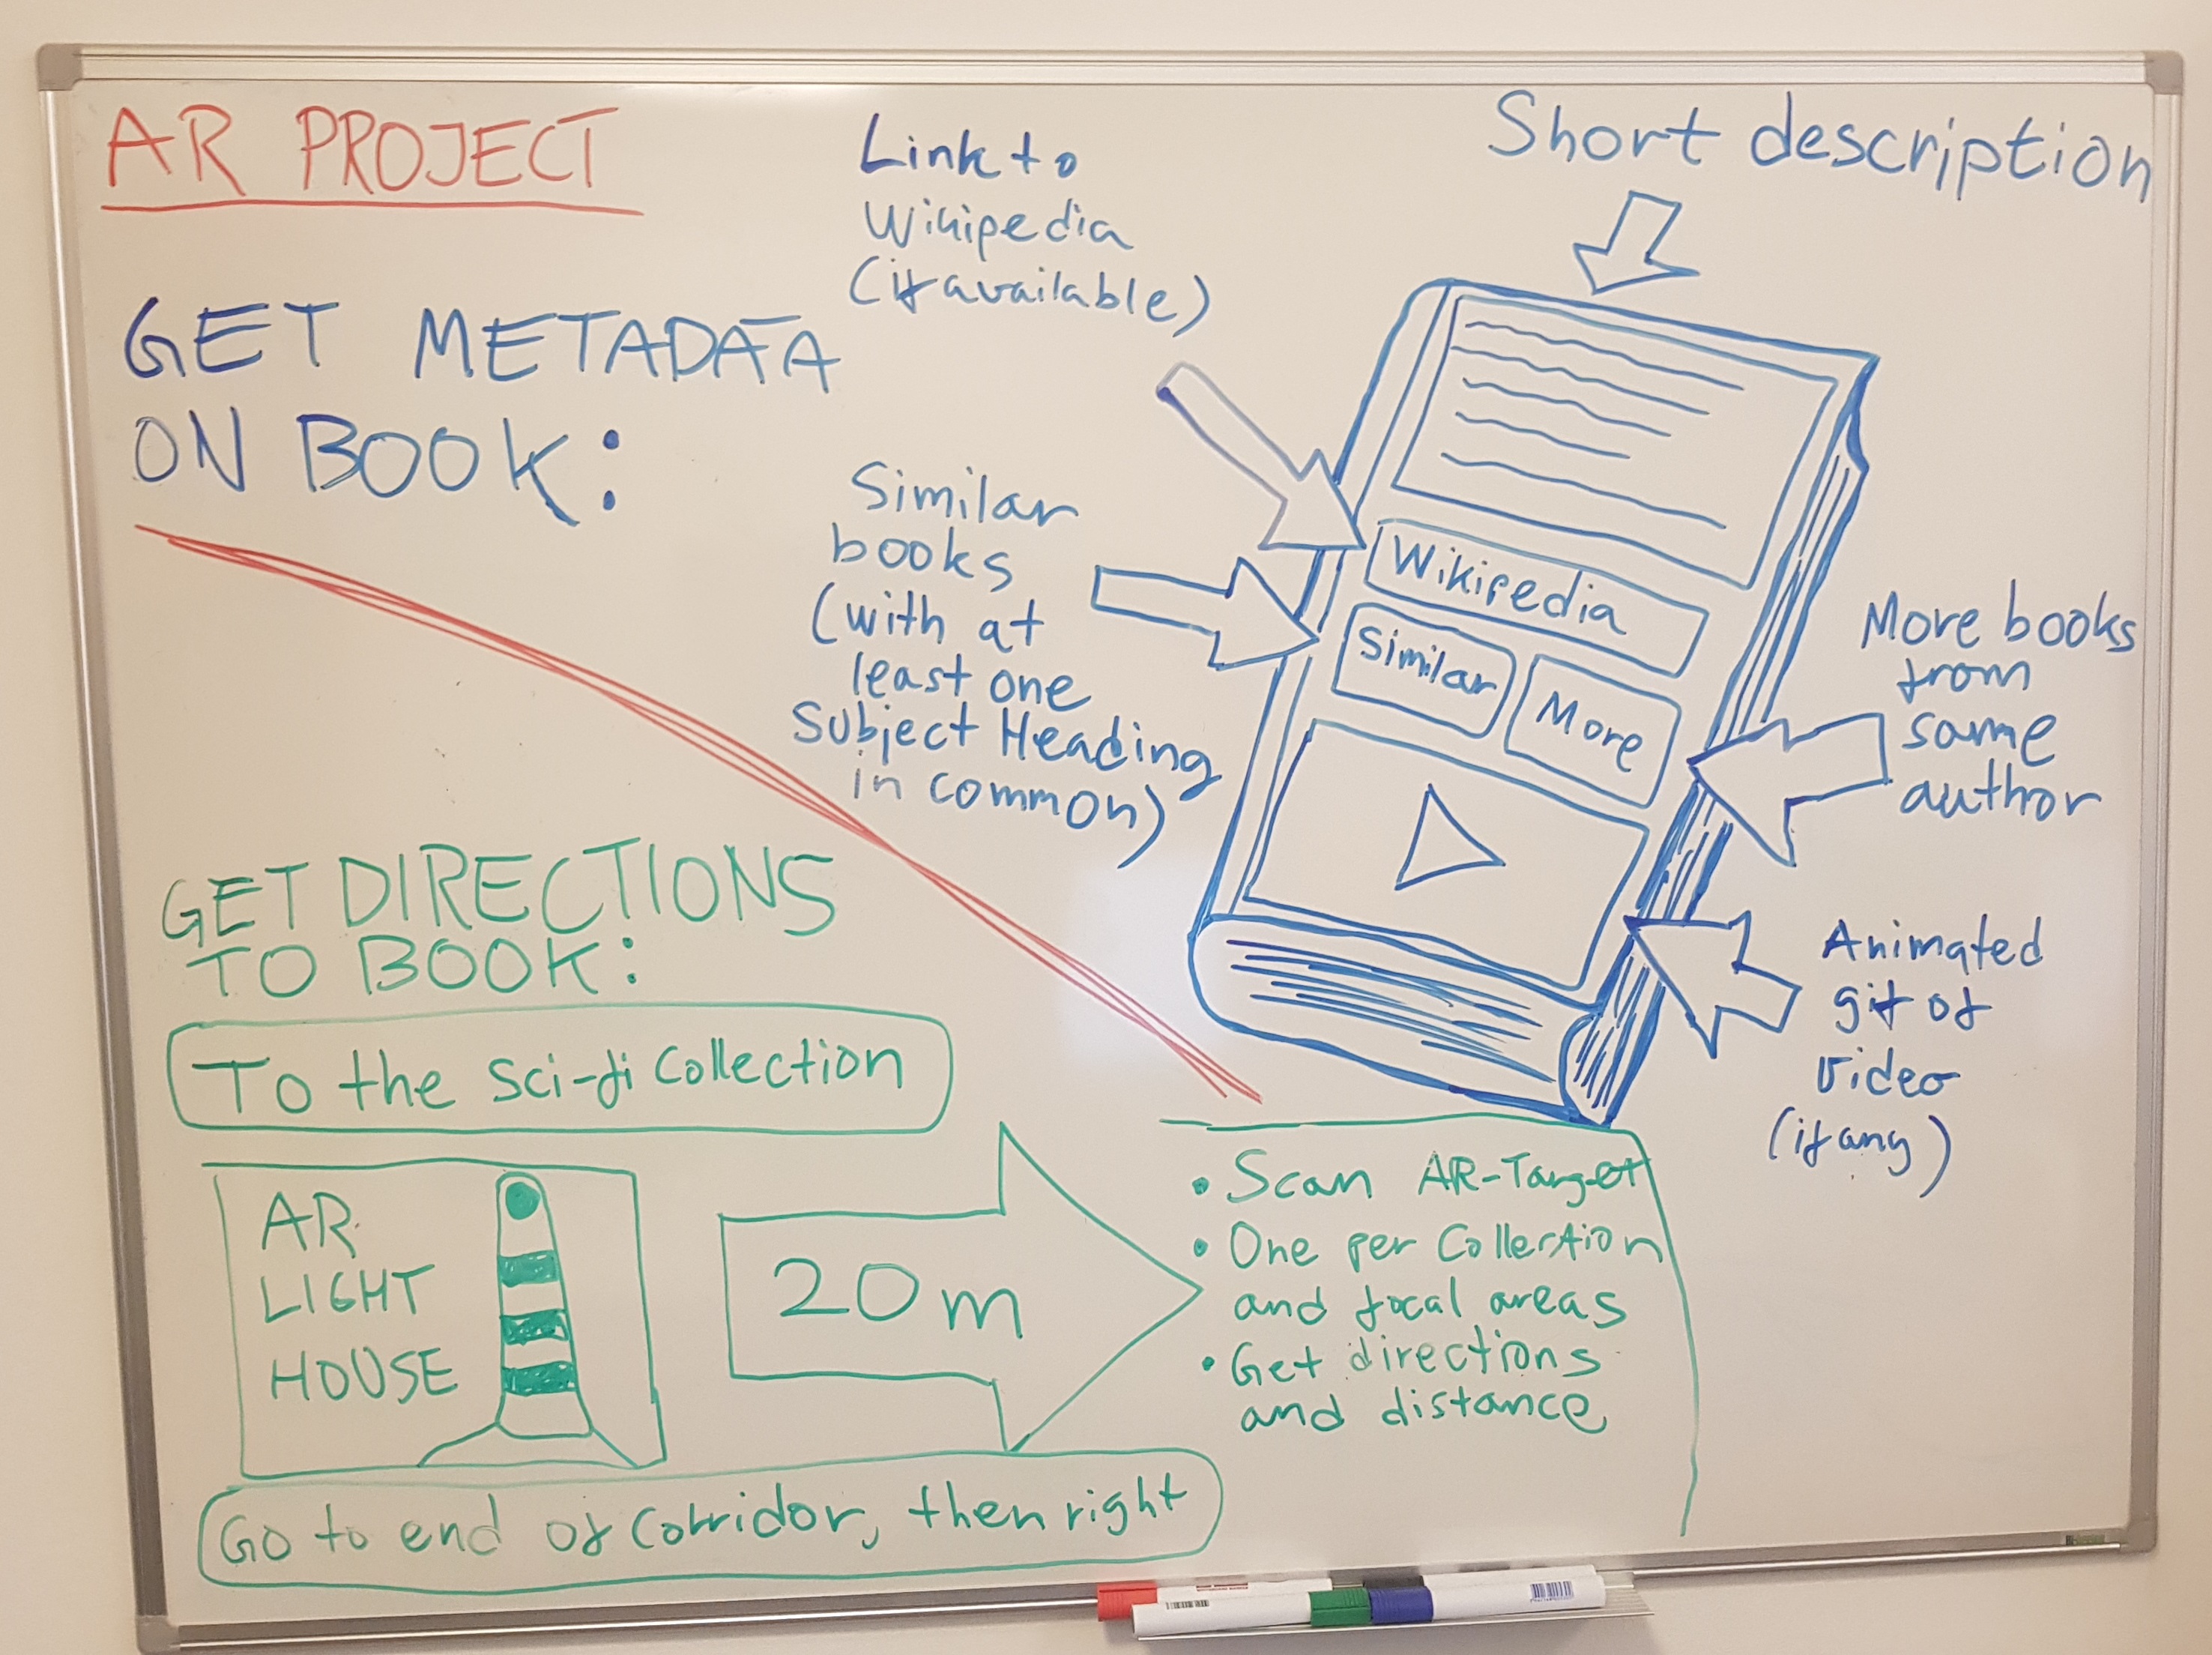 AR PROJECT
GET METADATA
ON BOOK:
Link to
Wikipedia
(if available)
Short description
Similar
books
(with at
least one
Subject Heading
in common)
Wikipedia
Similar
More
More books
from
same
author
Animated
gif of
video
(if any)
GET DIRECTIONS
TO BOOK:
To the sci-fi collection
AR
LIGHT
HOUSE
20 m
Go to end of corridor, then right
• Scan AR-Target
• One per Collection
and focal areas
• Get directions
and distance